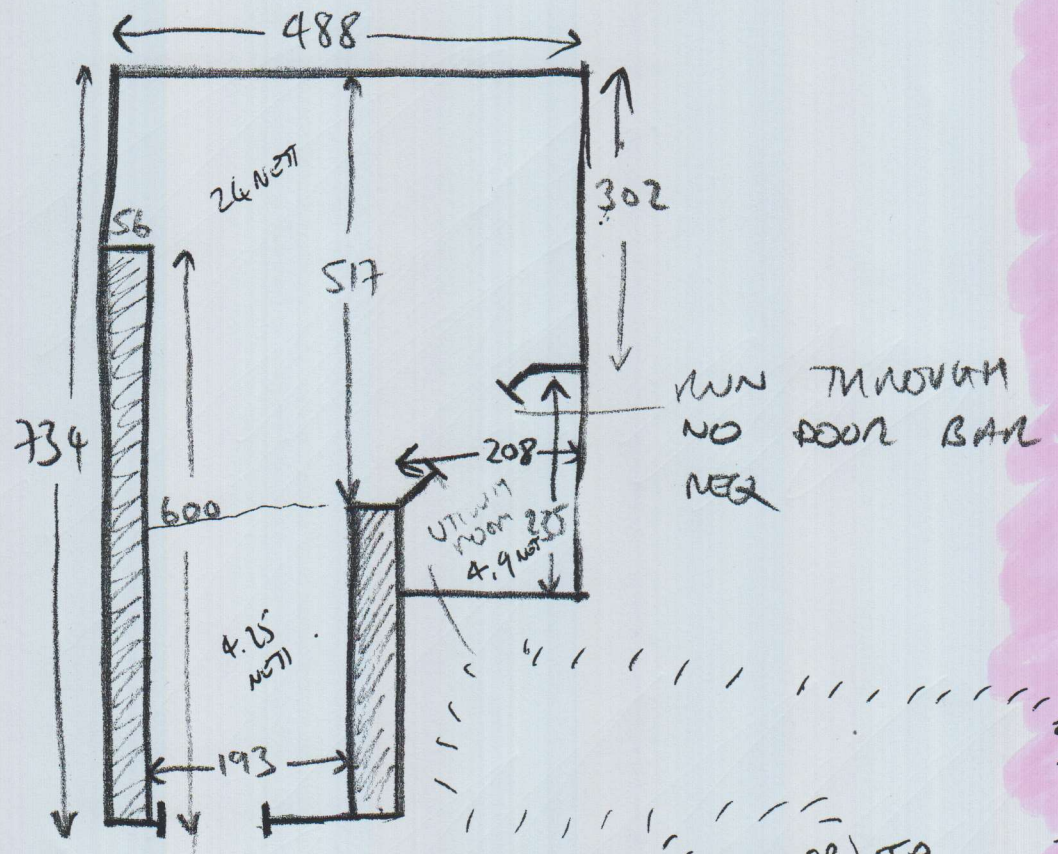 488
24 NETT
302
56
517
RUN THROUGH
NO DOOR BAR
REQ
734
208
600
UTILITY
ROOM 235
4.9 NETT
4.25
NETT
193
TO